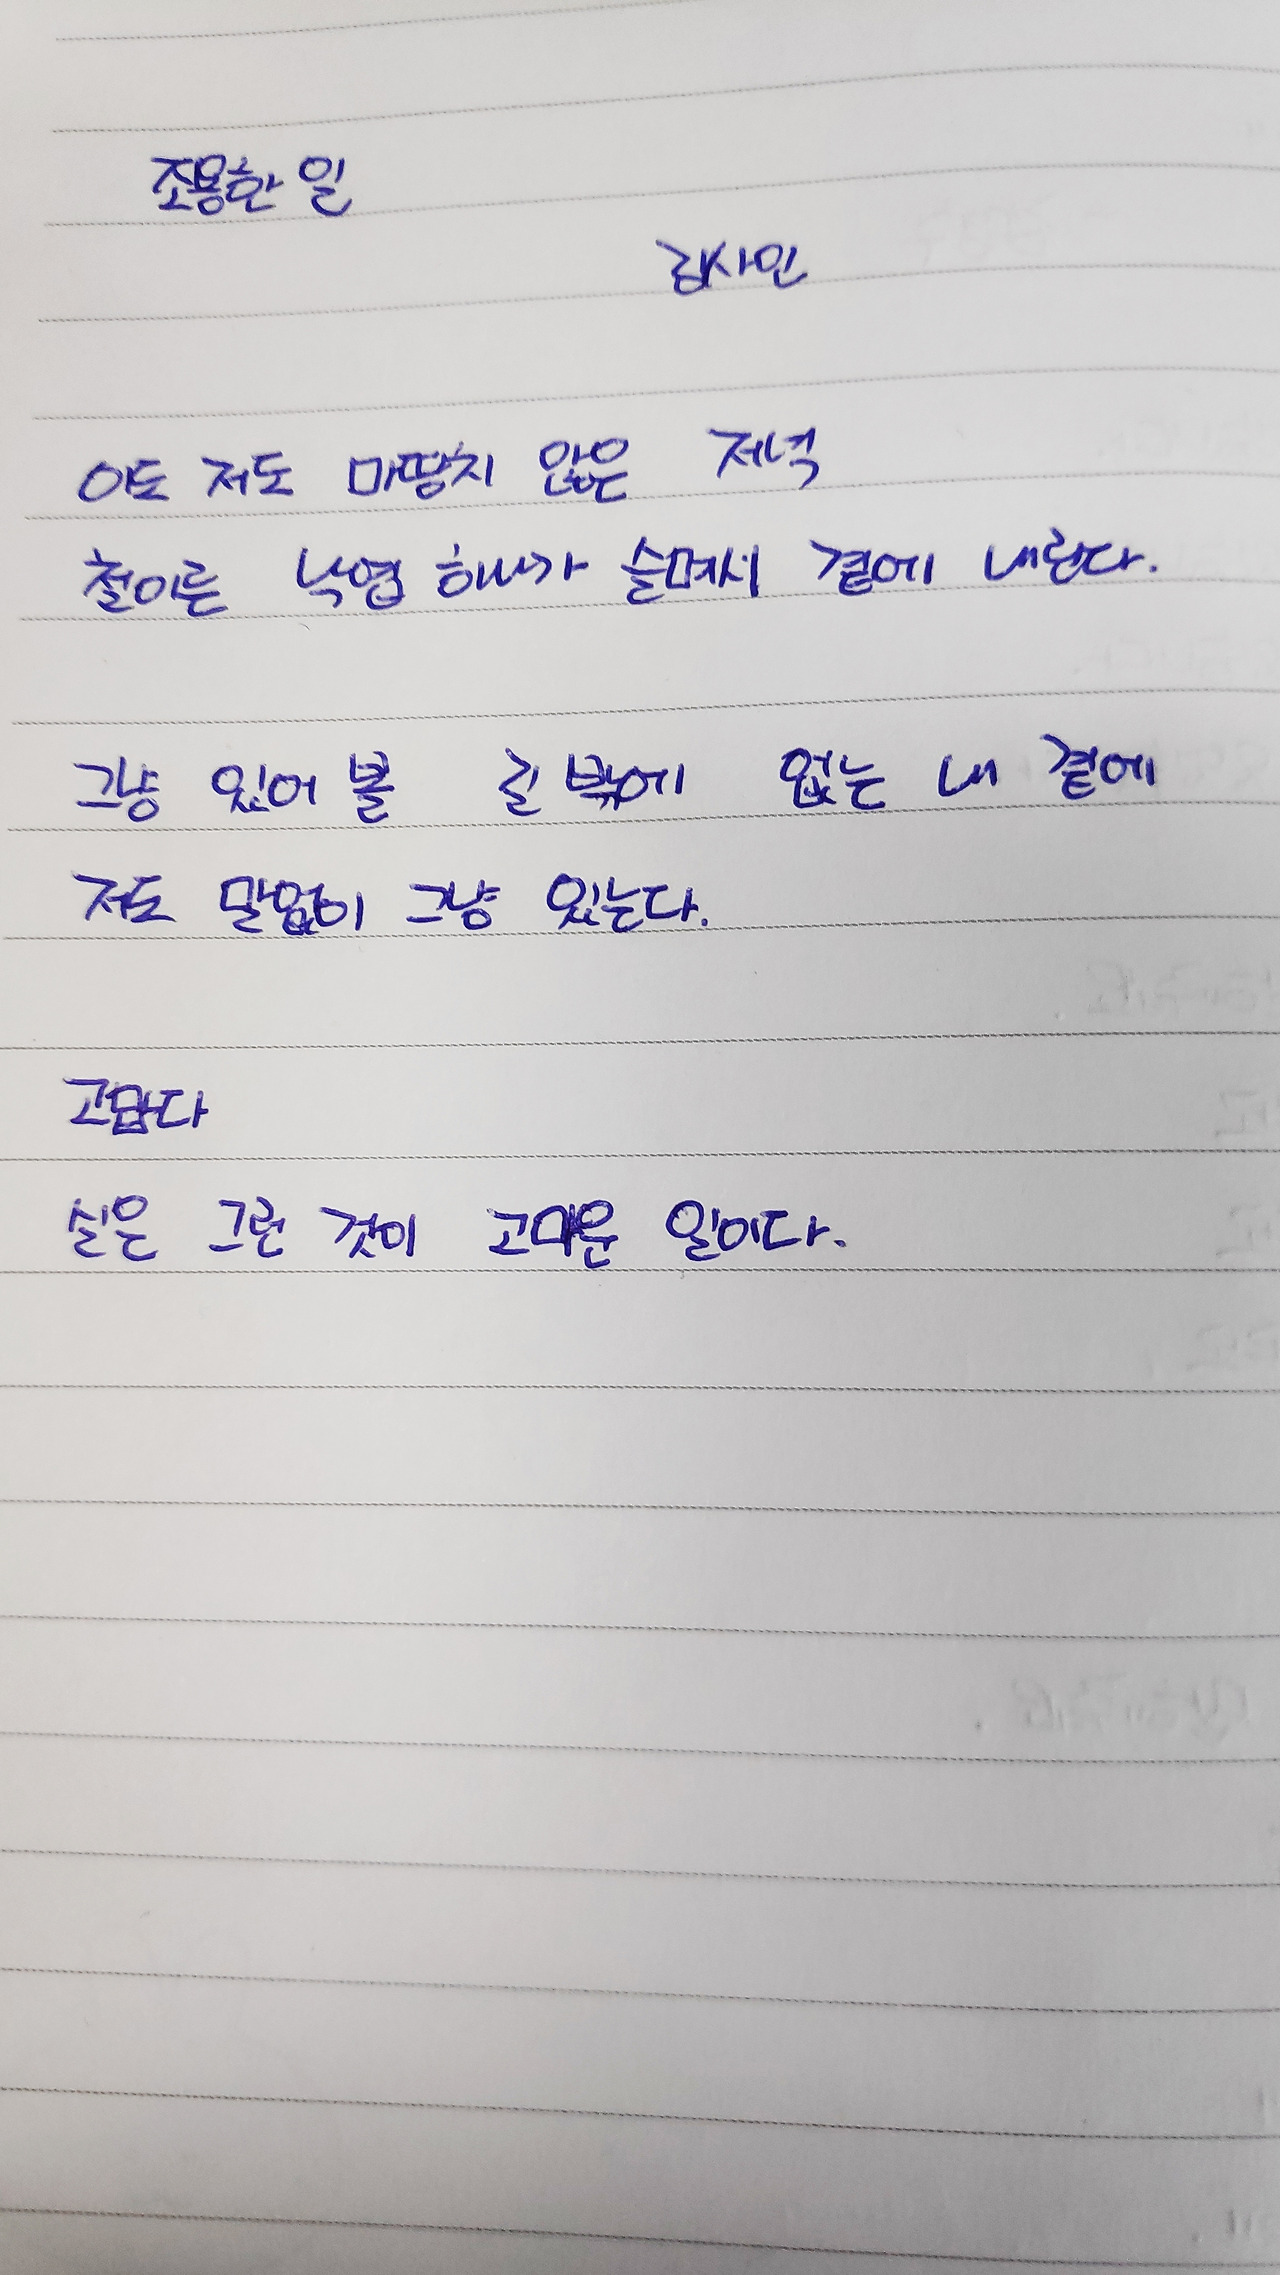 조용한 일
김사인
이도 저도 마땅치 않은 저녁
철이른 낙엽 하나가 슬며시 곁에 내린다.
그냥 있어 볼 길 밖에 없는 내 곁에
저도 말없이 그냥 있는다.
고맙다
실은 그런 것이 고마운 일이다.